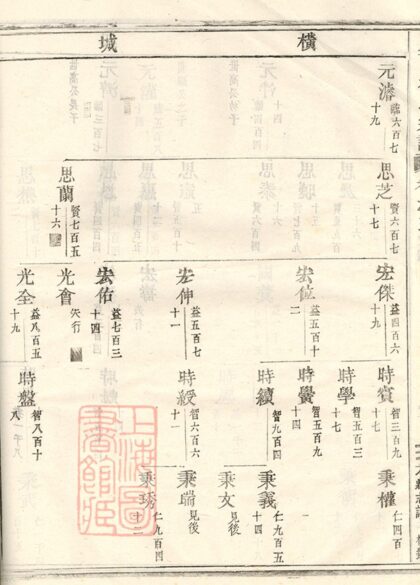 橫城
元濬
臨六百七
十九
思芝
賢六百七
十七
思蘭
賢七百五
十六
宏傑
益四百六
十九
宏位
益五百十
二
宏伸
益五百七
十一
宏佑
益七百三
十四
光會
失行
光全
益八百五
十九
時賓
智三百九
十七
時學
智五百三
十七
時黌
智五百九
十四
時續
智九百四
時綬
智六百六
十一
時盤
智八百十
八
秉權
仁四百
秉義
仁九百五
十四
秉文
見後
秉瑞
見後
秉琇
仁九百四
上海圖書館藏